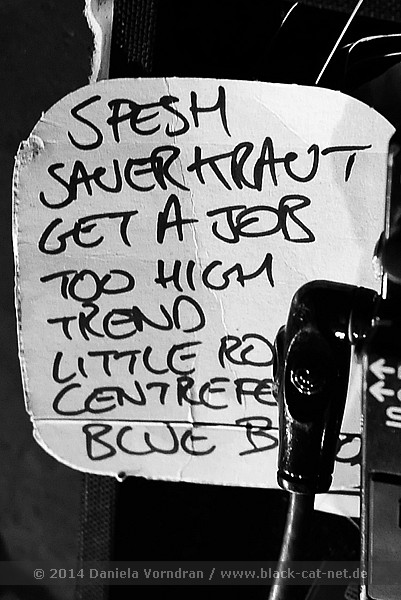 SPESH
SAUERKRAUT
GET A JOB
TOO HIGH
TREND
LITTLE RO
CENTREFE
BLUE B
S
© 2014 Daniela Vorndran / www.black-cat-net.de